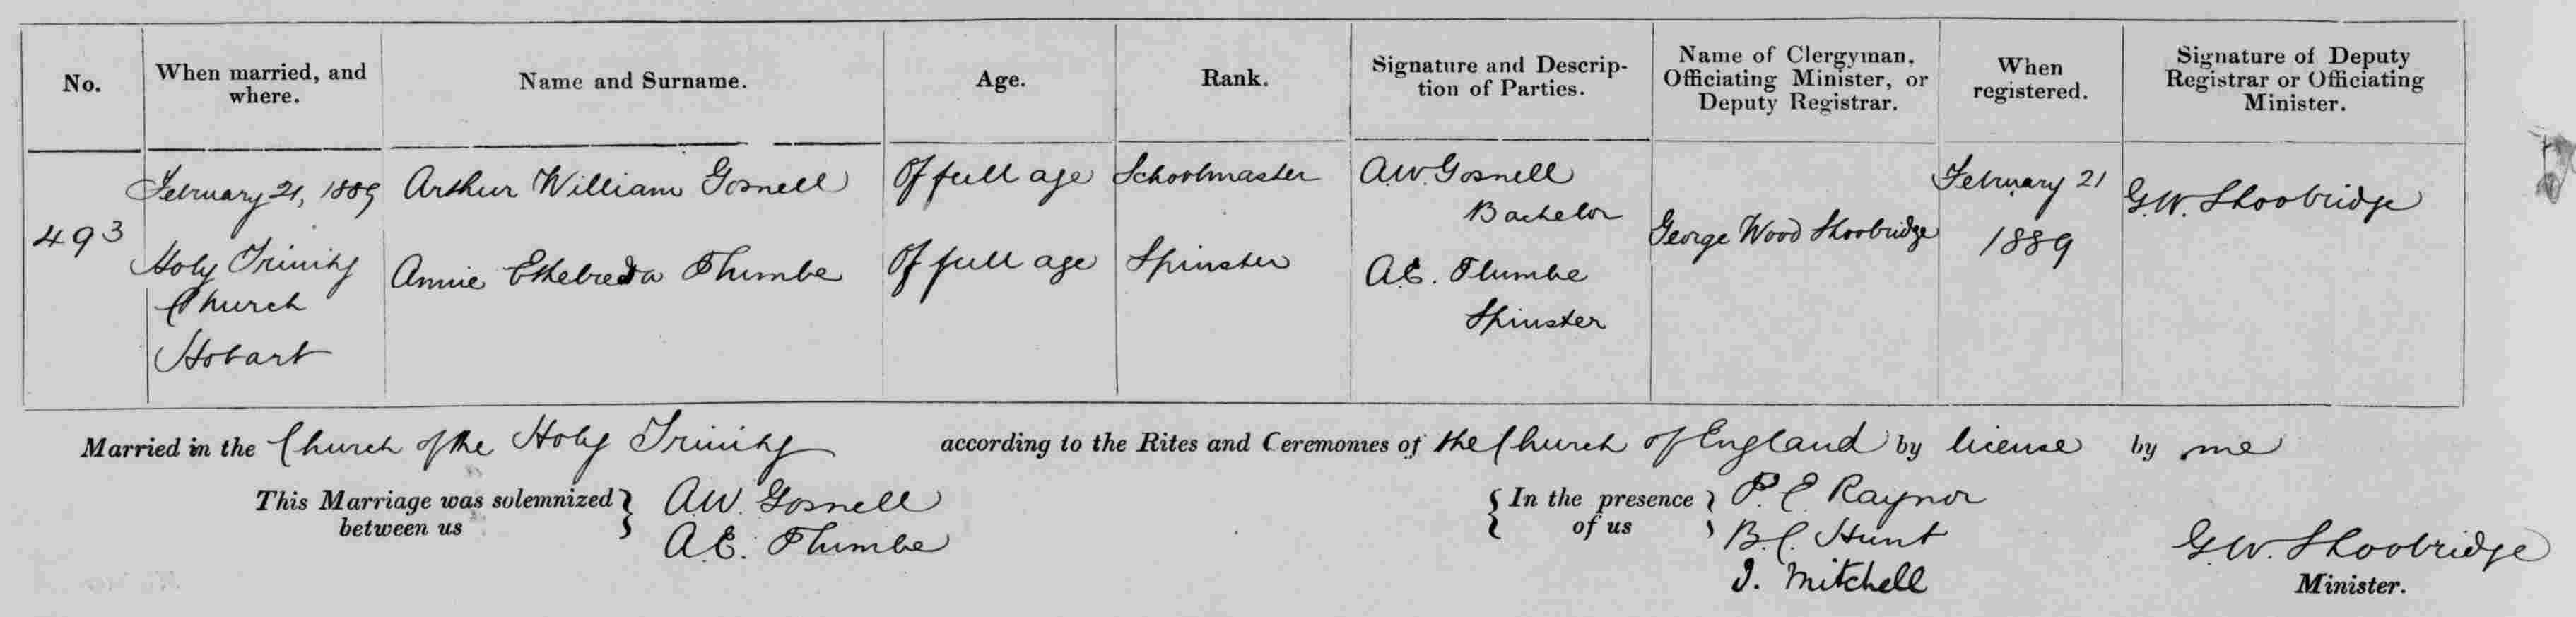 No.
When married, and
where.
Name and Surname.
Age.
Rank.
Signature and Descrip-
tion of Parties.
Name of Clergyman,
Officiating Minister, or
Deputy Registrar.
When
registered.
Signature of Deputy
Registrar or Officiating
Minister.
493
February 21, 1889
Holy Trinity
Church
Hobart
Arthur William Gosnell
Annie Ethelreda Plumbe
Of full age
Of full age
Schoolmaster
Spinster
A.W. Gosnell
Bachelor
A.E. Plumbe
Spinster
George Wood Shoobridge
February 21
1889
G.W. Shoobridge
Married in the Church of the Holy Trinity according to the Rites and Ceremonies of the Church of England by license by me
This Marriage was solemnized
between us
A.W. Gosnell
A.E. Plumbe
In the presence
of us
P. E. Raynor
B.C. Hunt
J. Mitchell
G.W. Shoobridge
Minister.